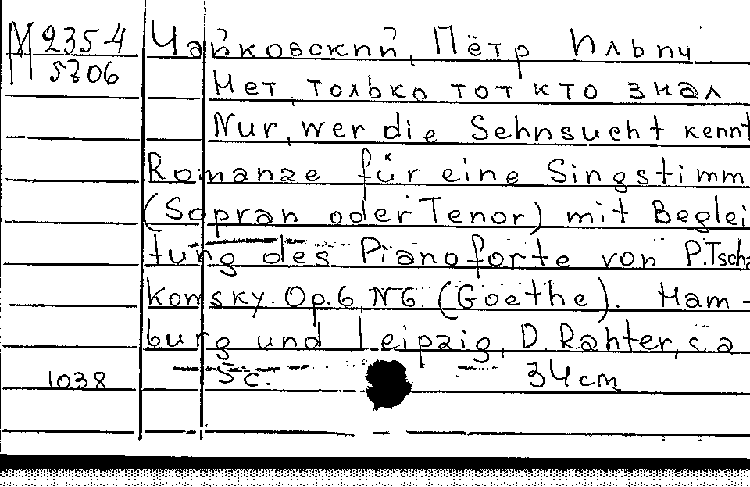 M 235-4 Чайковский, Пётр Ильич
5306 Нет, только тот кто знал
Nur, wer die Sehnsucht kennt
Romanze für eine Singstimm
(Sopran oder Tenor) mit Beglei
tung des Pianoforte von P. Tscha
kowsky. Op. 6 N 6 (Goethe). Ham-
burg und Leipzig, D. Rahter, s.a
1038 5 c. 34 cm